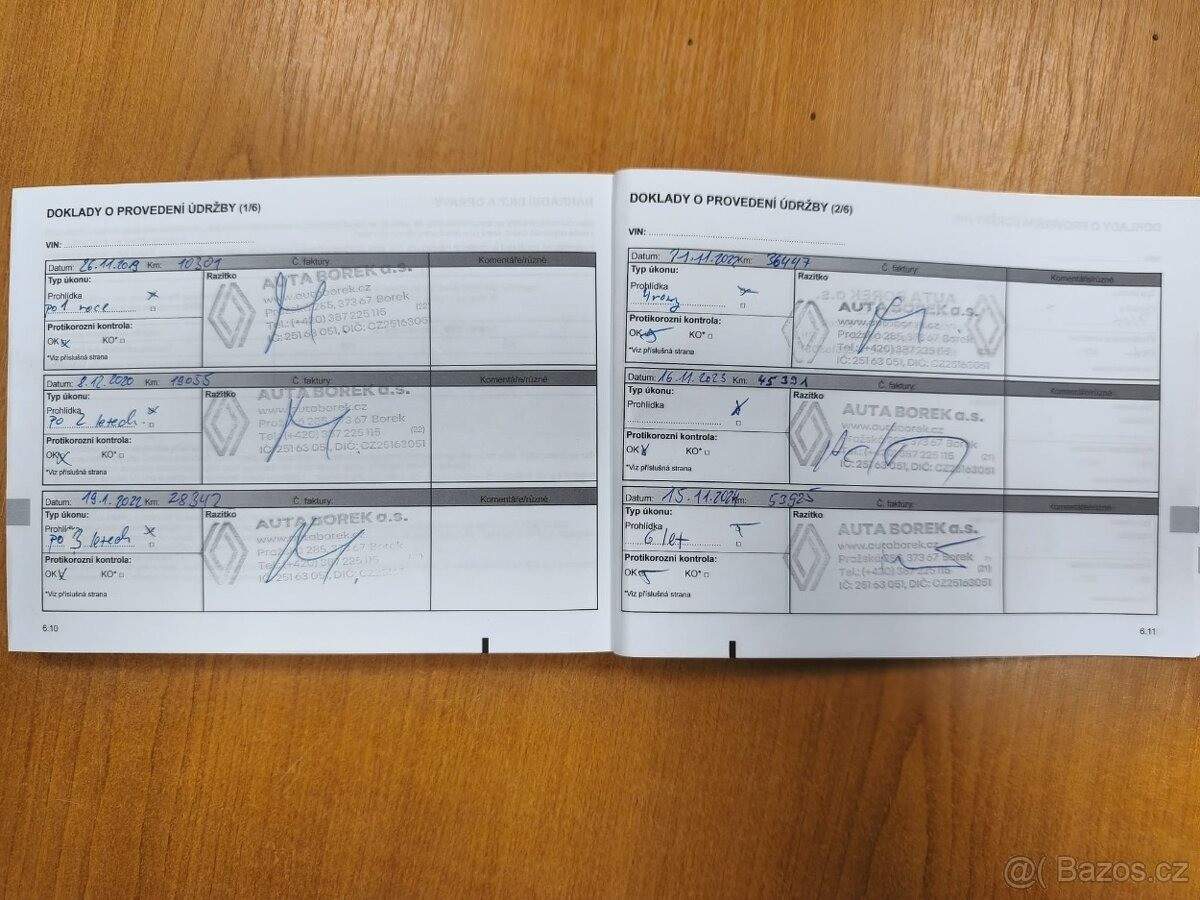 DOKLADY O PROVEDENÍ ÚDRŽBY (1/6)
VIN:
Datum: 26.11.2019 Km: 10301 Č. faktury:
Typ úkonu: Razítko
Prohlídka
po 1 roce
Protikorozní kontrola:
OK KO*
*Viz příslušná strana
AUTA BOREK a.s.
www.autoborek.cz
285, 373 67 Borek
Tel.: (+420) 387 225 115 (22)
IČ: 251 63 051, DIČ: CZ25163051
Komentáře/různé
Datum: 8.12.2020 Km: 19055 Č. faktury: Komentáře/různé
Typ úkonu: Razítko
Prohlídka
po 2 letech
Protikorozní kontrola:
OK KO*
*Viz příslušná strana
AUTA BOREK a.s.
www.autoborek.cz
Pražská 285, 373 67 Borek
Tel.: (+420) 387 225 115 (22)
IČ: 251 63 051, DIČ: CZ25163051
Datum: 19.1.2022 Km: 28342 Č. faktury: Komentáře/různé
Typ úkonu: Razítko
Prohlídka
po 3 letech
Protikorozní kontrola:
OK KO*
*Viz příslušná strana
AUTA BOREK a.s.
www.autoborek.cz
Pražská 285, 373 67 Borek
Tel.: (+420) 387 225 115 (22)
IČ: 251 63 051, DIČ: CZ25163051
6.10
DOKLADY O PROVEDENÍ ÚDRŽBY (2/6)
VIN:
Datum: 21.11.2022 Km: 36447 Č. faktury: Komentáře/různé
Typ úkonu: Razítko
Prohlídka
4 roky
Protikorozní kontrola:
OK KO*
*Viz příslušná strana
AUTA BOREK a.s.
www.autoborek.cz
Pražská 285, 373 67 Borek
Tel.: (+420) 387 225 115
IČ: 251 63 051, DIČ: CZ25163051
Datum: 16.11.2023 Km: 45391 Č. faktury: Komentáře/různé
Typ úkonu: Razítko
Prohlídka
Protikorozní kontrola:
OK KO*
*Viz příslušná strana
AUTA BOREK a.s.
www.autoborek.cz
Pražská 285, 373 67 Borek
Tel.: (+420) 387 225 115 (21)
IČ: 251 63 051, DIČ: CZ25163051
Datum: 15.11.2024 Km: 53925 Č. faktury: Komentáře/různé
Typ úkonu: Razítko
Prohlídka
6 let
Protikorozní kontrola:
OK KO*
*Viz příslušná strana
AUTA BOREK a.s.
www.autoborek.cz
Pražská 285, 373 67 Borek
Tel.: (+420) 387 225 115 (21)
IČ: 251 63 051, DIČ: CZ25163051
6.11
@( Bazos.cz